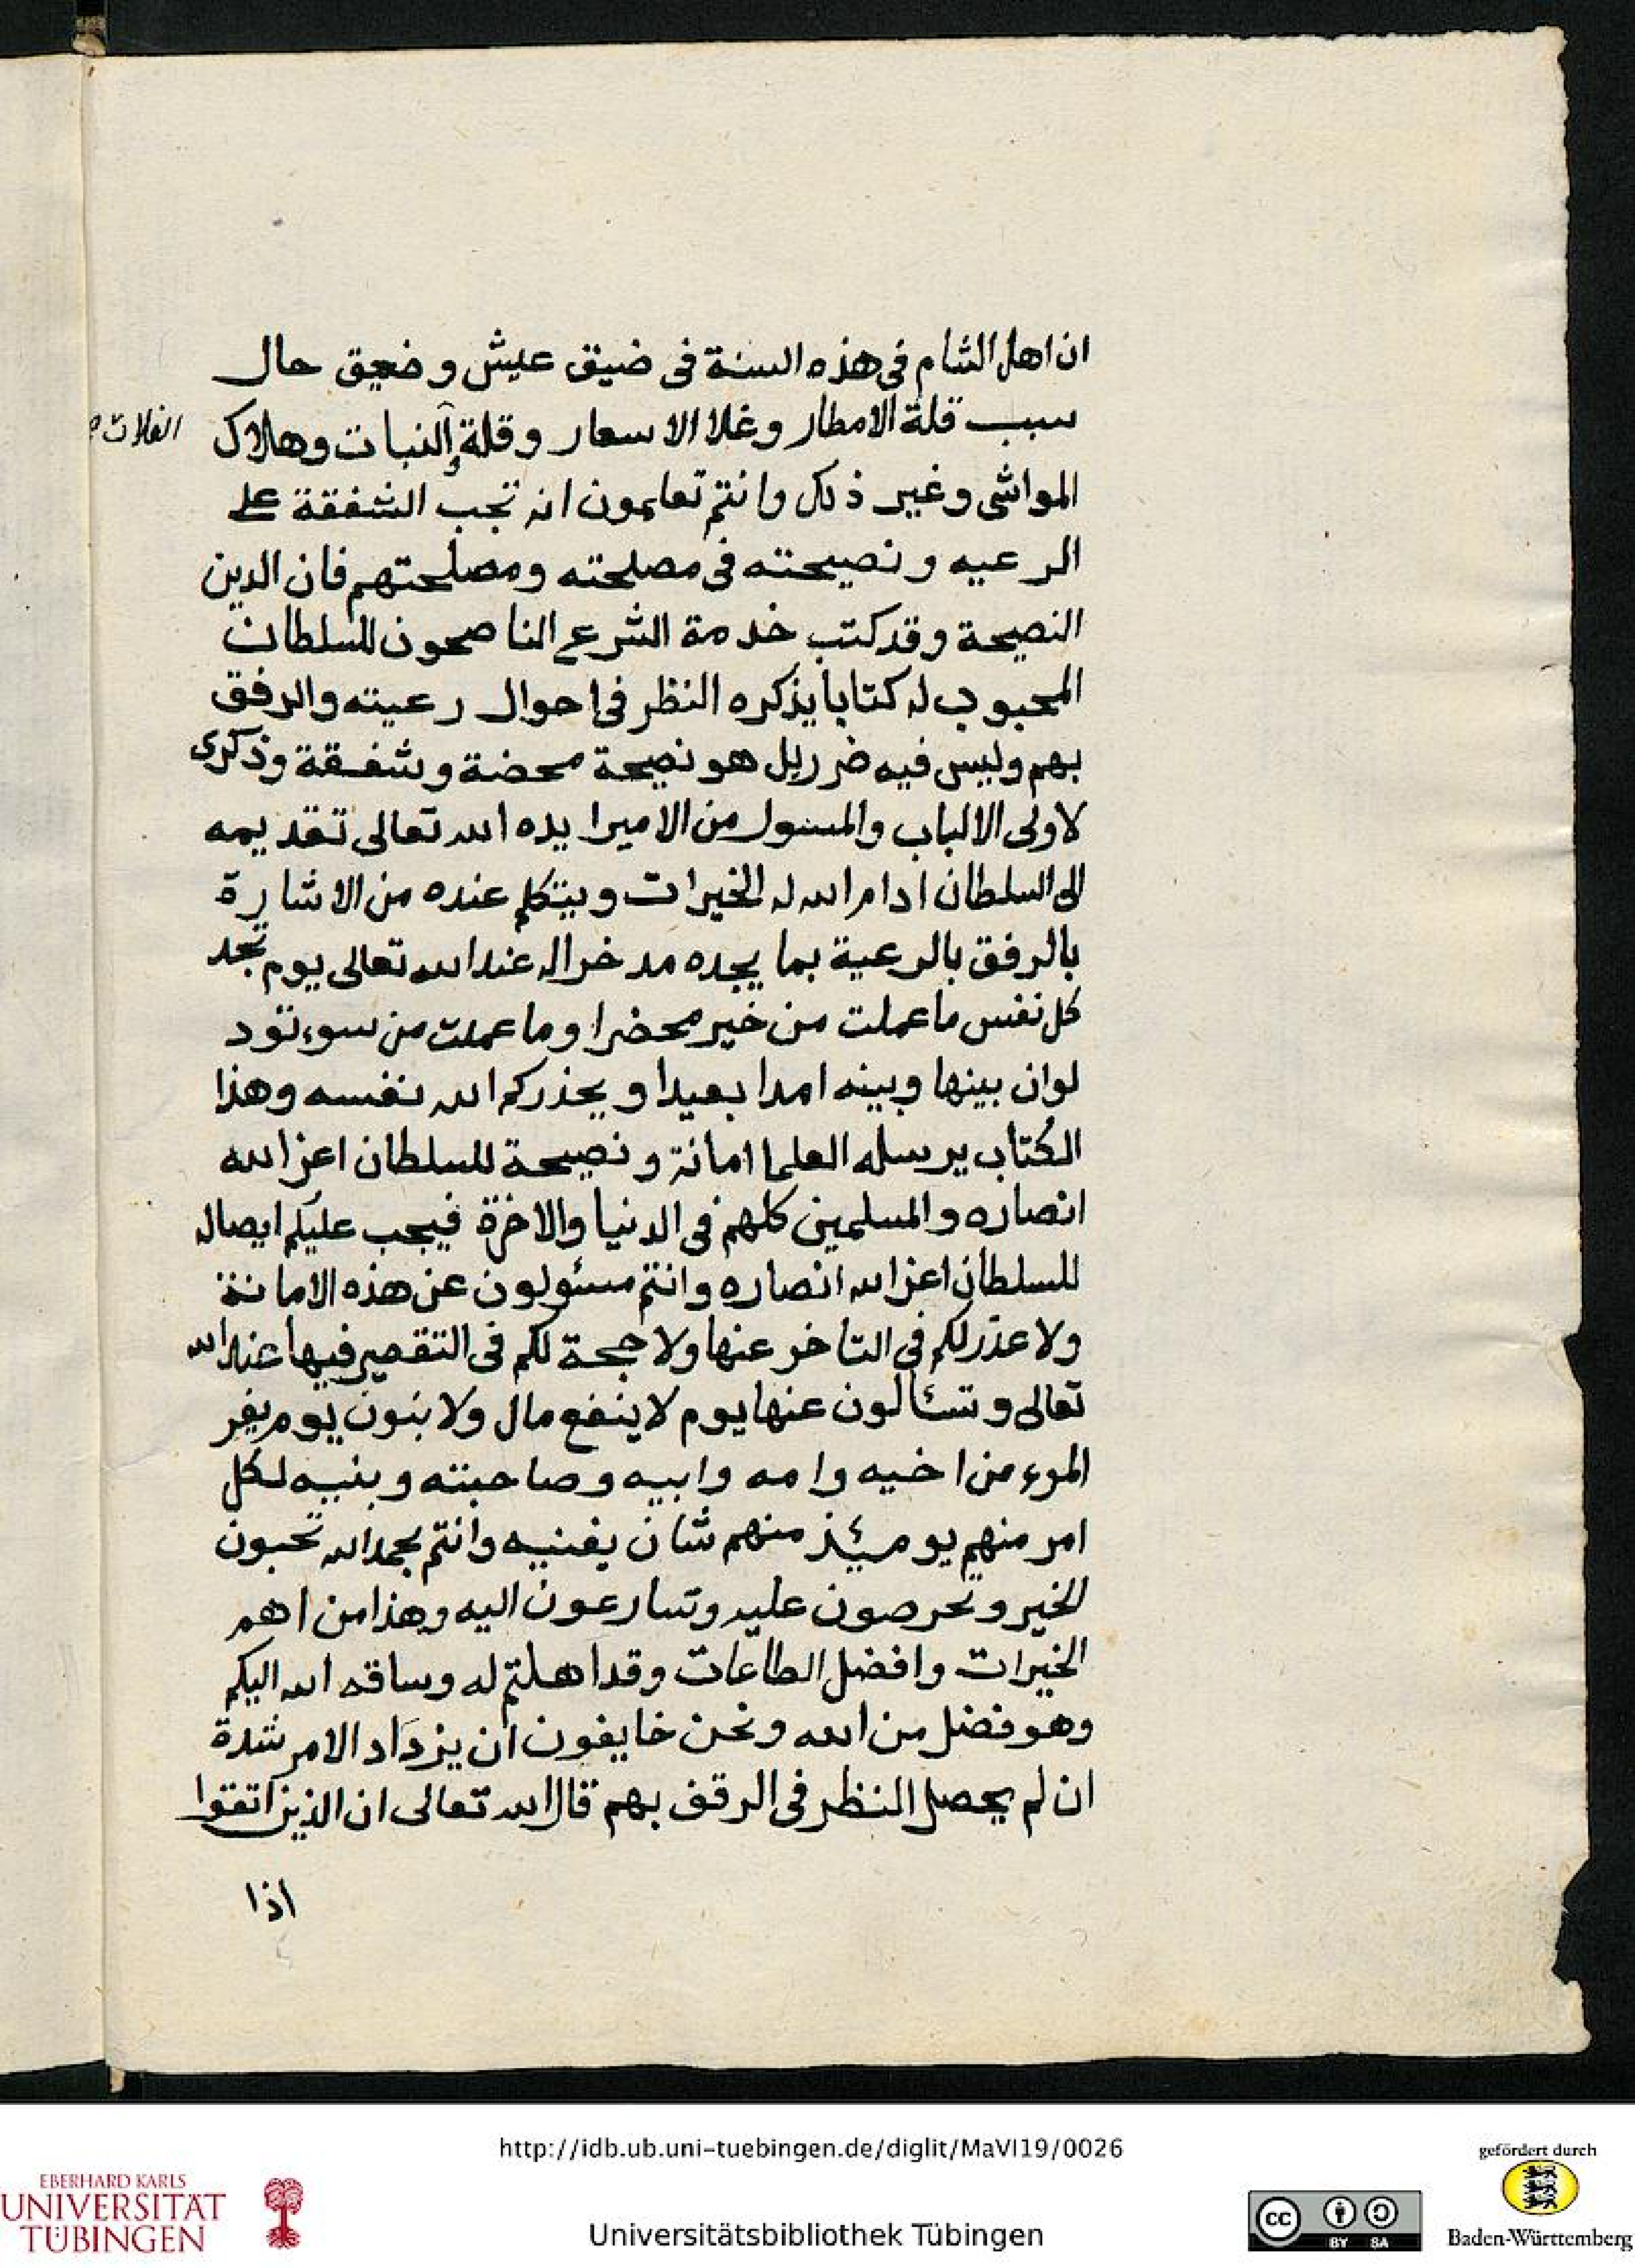 ان اهل الشام فى هذه السنة فى ضيق عيش وضعيق حال
سبب قلة الامطار وغلا الاسعار وقلة النبات وهلاك
الغلات و
المواشى وغير ذلك وانتم تعلمون انه تجب الشفقة على
الرعيه ونصيحته فى مصلحته ومصلحتهم فان الدين
النصيحة وقد كتب خدمة الشرع الناصحون للسلطان
المحبوب له كتابا يذكره النظر فى احوال رعيته والرفق
بهم وليس فيه ضرر بل هو نصيحة محضة وشفقة وذكرى
لاولى الالباب والمسول من الامير ايده الله تعالى تقديمه
الى السلطان ادام الله له الخيرات ويتكلم عنده من الاشارة
بالرفق بالرعية بما يجده مدخرا له عند الله تعالى يوم تجد
كل نفس ما عملت من خير محضرا وما عملت من سوء تود
لو ان بينها وبينه امدا بعيدا ويحذركم الله نفسه وهذا
الكتاب يرسله العلما امانة ونصيحة للسلطان اعز الله
انصاره والمسلمين كلهم فى الدنيا والاخرة فيجب عليكم ايصاله
للسلطان اعز الله انصاره وانتم مسئولون عن هذه الامانة
ولا عذر لكم فى التاخر عنها ولا حجة لكم فى التقصير فيها عند الله
تعالى وتسئالون عنها يوم لا ينفع مال ولا بنون يوم يفر
المرء من اخيه وامه وابيه وصاحبته وبنيه لكل
امر منهم يوميئذ منهم شان يغنيه وانتم بحمد الله تحبون
الخير وتحرصون عليه وتسارعون اليه وهذا من اهم
الخيرات وافضل الطاعات وقد اهلتم له وساقه الله اليكم
وهو فضل من الله ونحن خايفون ان يزداد الامر شدة
ان لم يحصل النظر فى الرفق بهم قال الله تعالى ان الذين اتقوا
اذا
http://idb.ub.uni-tuebingen.de/diglit/MaVI19/0026
Universitätsbibliothek Tübingen
EBERHARD KARLS
UNIVERSITÄT
TÜBINGEN
cc
BY SA
gefördert durch
Baden-Württemberg